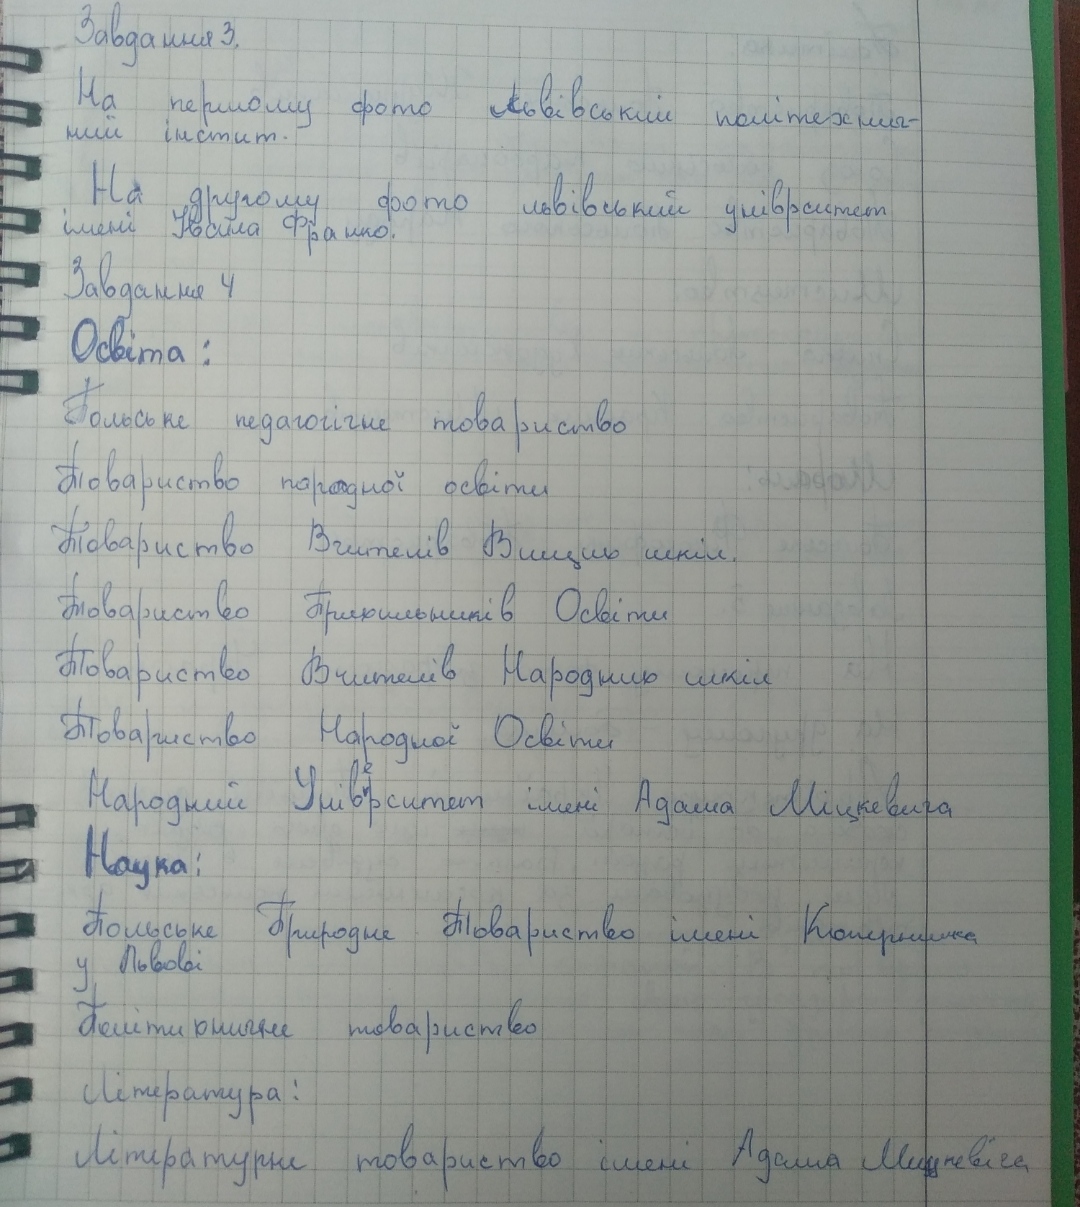 Завдання 3.
На першому фото Львівський політехніч-
ний інстит.
На другому фото львівський університет
імені Івана Франко.
Завдання 4
Освіта:
Польське педагогічне товариство
Товариство народної освіти
Товариство Вчителів Вищих шкіл.
Товариство Прихильників Освіти
Товариство Вчителів Народних шкіл
Товариство Народної Освіти
Народний Університет імені Адама Міцкевича
Наука:
Польське Природне Товариство імені Коперника
у Львові
Політихнічне товариство
Література:
Літературне товариство імені Адама Міцкевіча